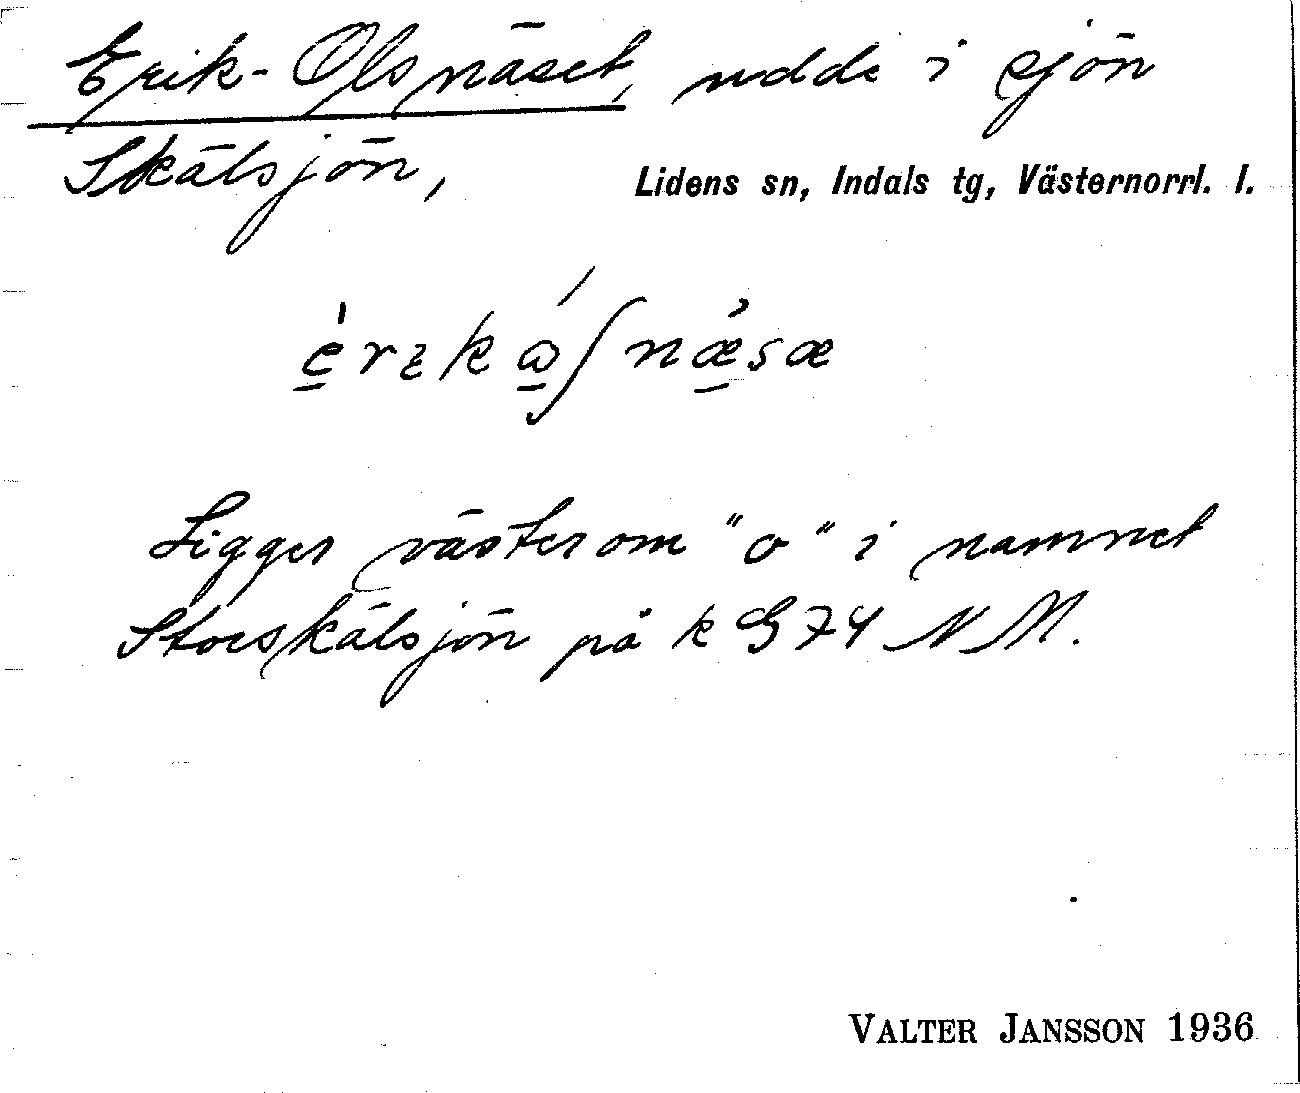 Erik-Olsnäset, udde i sjön
Skälsjön, Lidens sn, Indals tg, Västernorrl. l.
Ligger väster om "o" i namnet
Storskälsjön på k G 74 NM.
VALTER JANSSON 1936